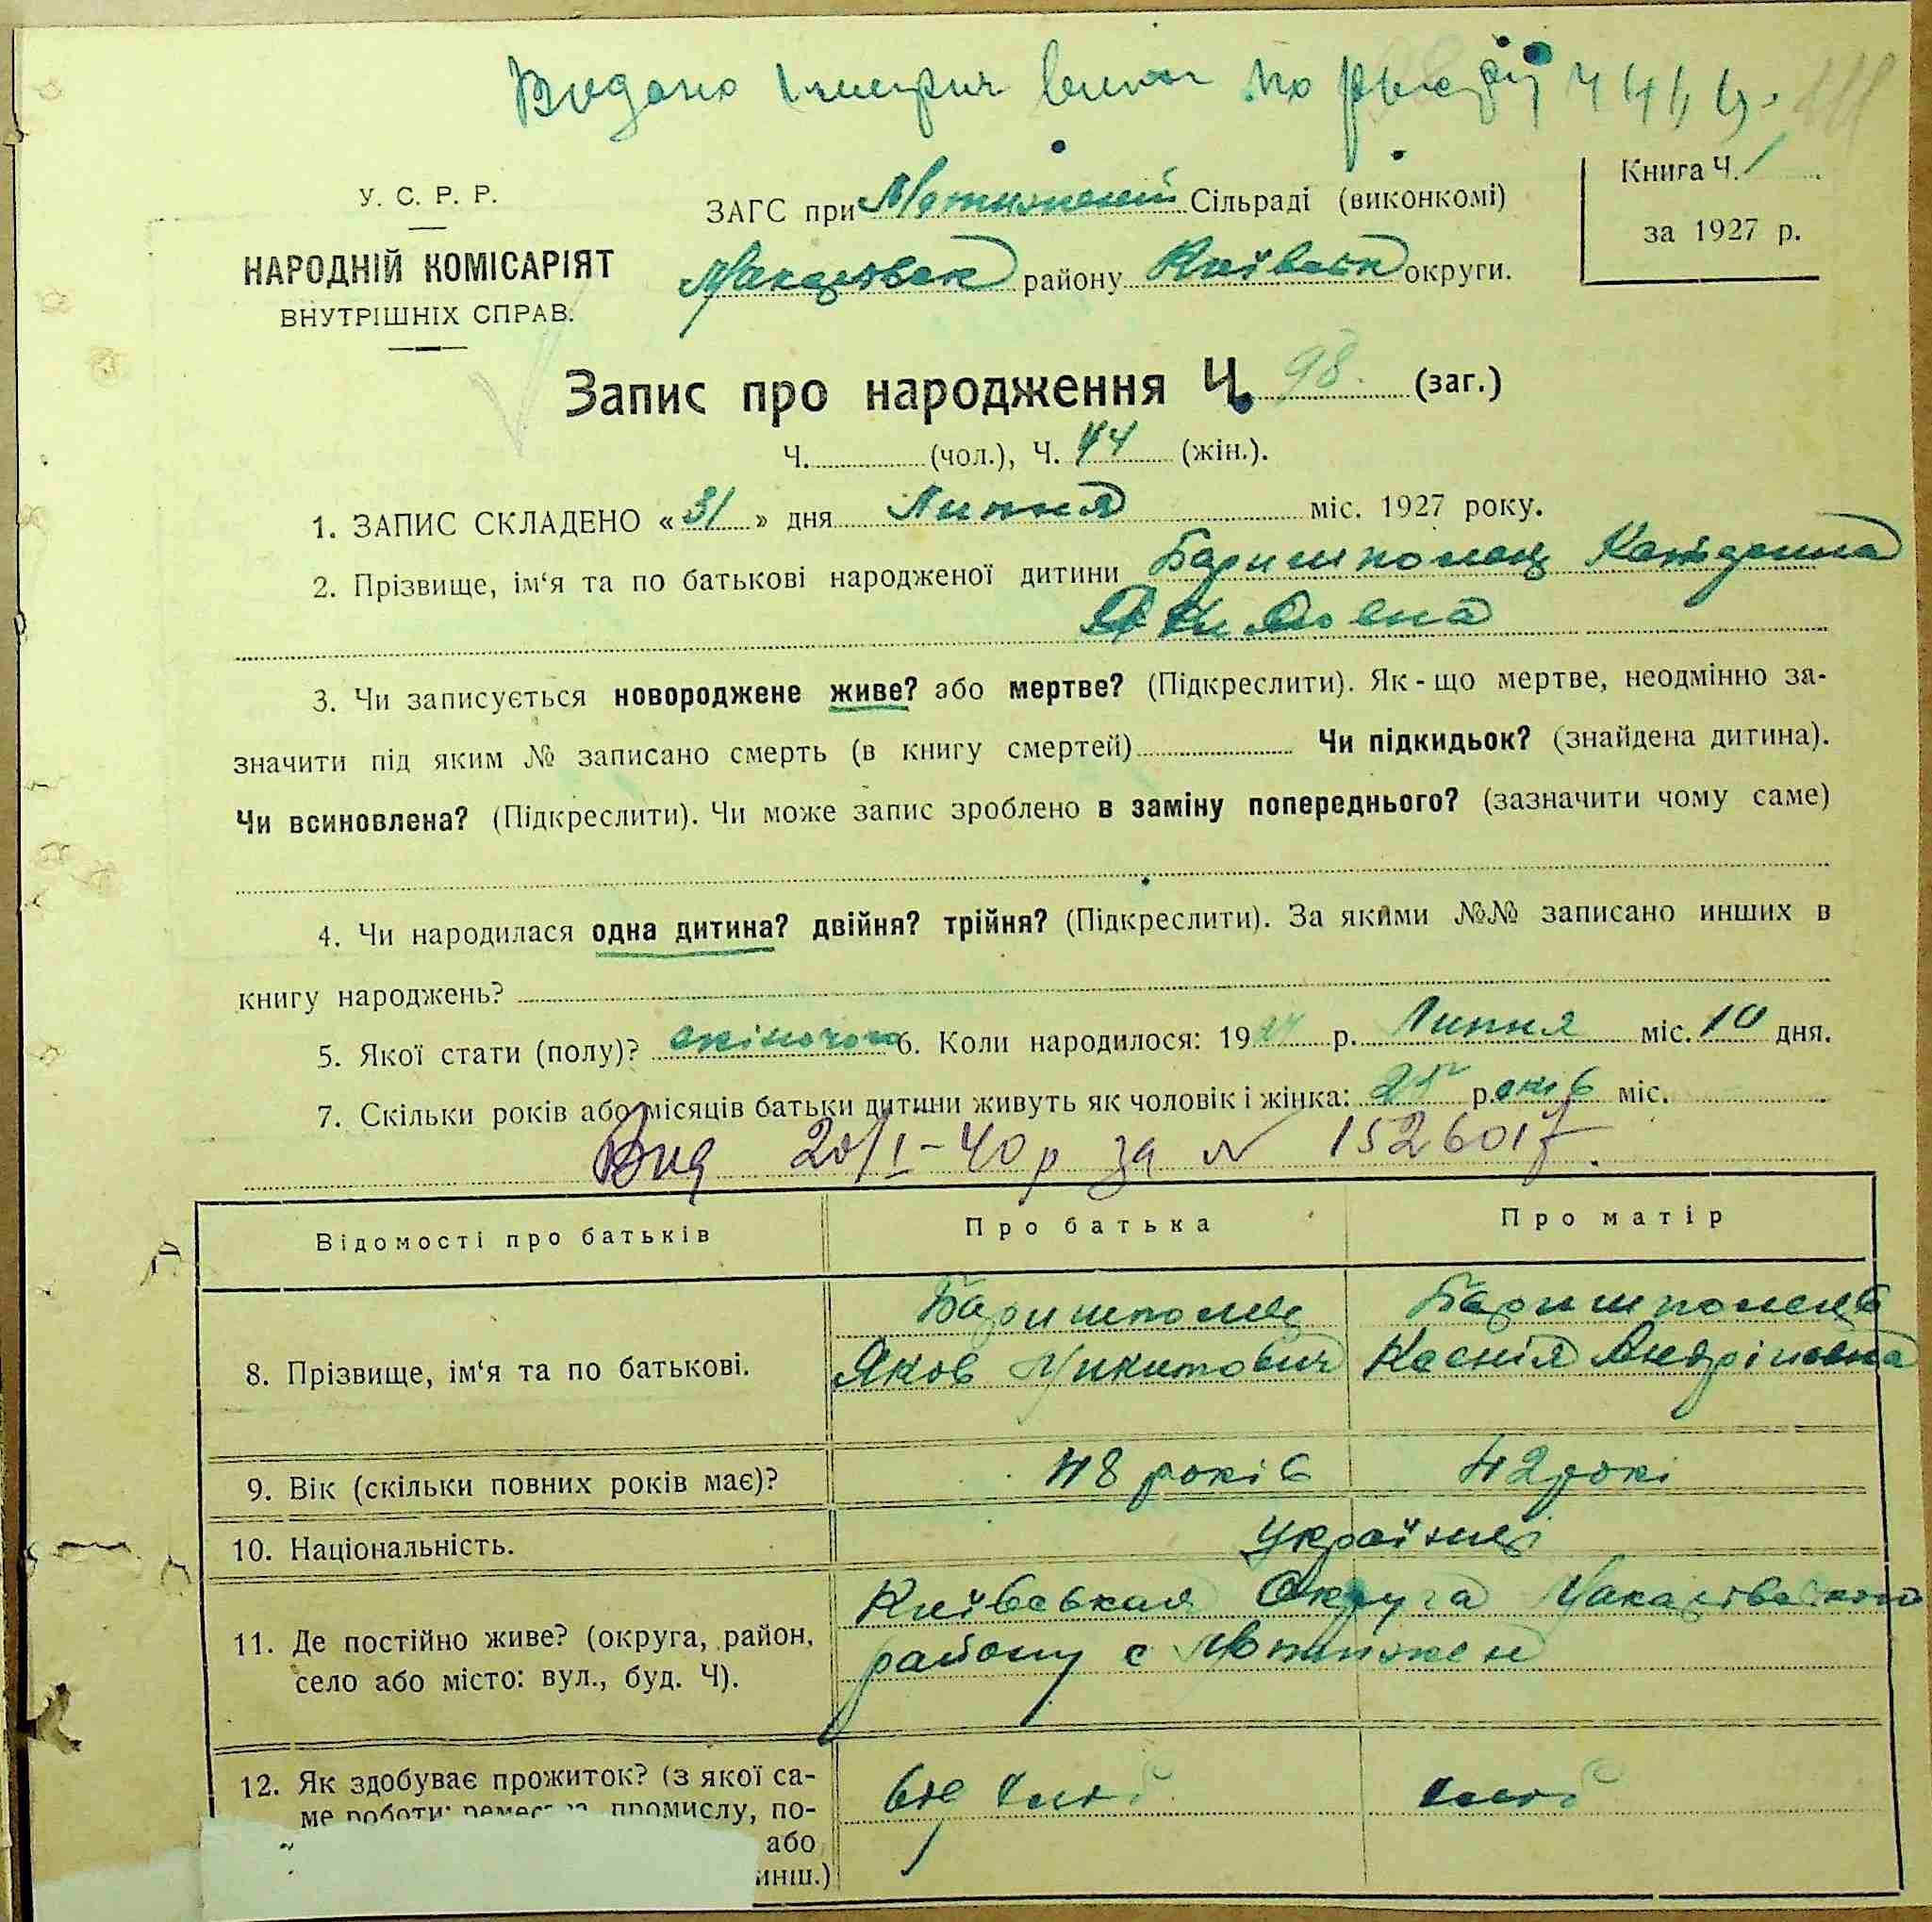 Видано
У. С. Р. Р.
НАРОДНІЙ КОМІСАРІЯТ
ВНУТРІШНІХ СПРАВ.
ЗАГС при Мотижиській Сільраді (виконкомі)
Макарівськ району Київськ округи.
Книга Ч. 1
за 1927 р.
Запис про народження Ч. 98 (заг.)
Ч. (чол.), Ч. 44 (жін.).
1. ЗАПИС СКЛАДЕНО «31» дня Липня міс. 1927 року.
2. Прізвище, ім‘я та по батькові народженої дитини Баришполец
3. Чи записується новороджене живе? або мертве? (Підкреслити). Як-що мертве, неодмінно за-
значити під яким № записано смерть (в книгу смертей) Чи підкидьок? (знайдена дитина).
Чи всиновлена? (Підкреслити). Чи може запис зроблено в заміну попереднього? (зазначити чому саме)
4. Чи народилася одна дитина? двійня? трійня? (Підкреслити). За якими №№ записано инших в
книгу народжень?
5. Якої стати (полу)? жіночого 6. Коли народилося: 1927 р. Липня міс. 10 дня.
7. Скільки років або місяців батьки дитини живуть як чоловік і жінка: 25 років міс.
Вид 20/I-40 р за № 1526017.
Відомості про батьків
Про батька
Про матір
8. Прізвище, ім‘я та по батькові.
Баришполец
Яков Микитович
Баришполець
Ксенія Андріівна
9. Вік (скільки повних років має)?
48 років
42 рокі
10. Національність.
Українці
11. Де постійно живе? (округа, район,
село або місто: вул., буд. Ч).
Київськая Округа Макарівського
району с Мотижен
12. Як здобуває прожиток? (з якої са-
ме роботи: промислу, по-
або
инш.)